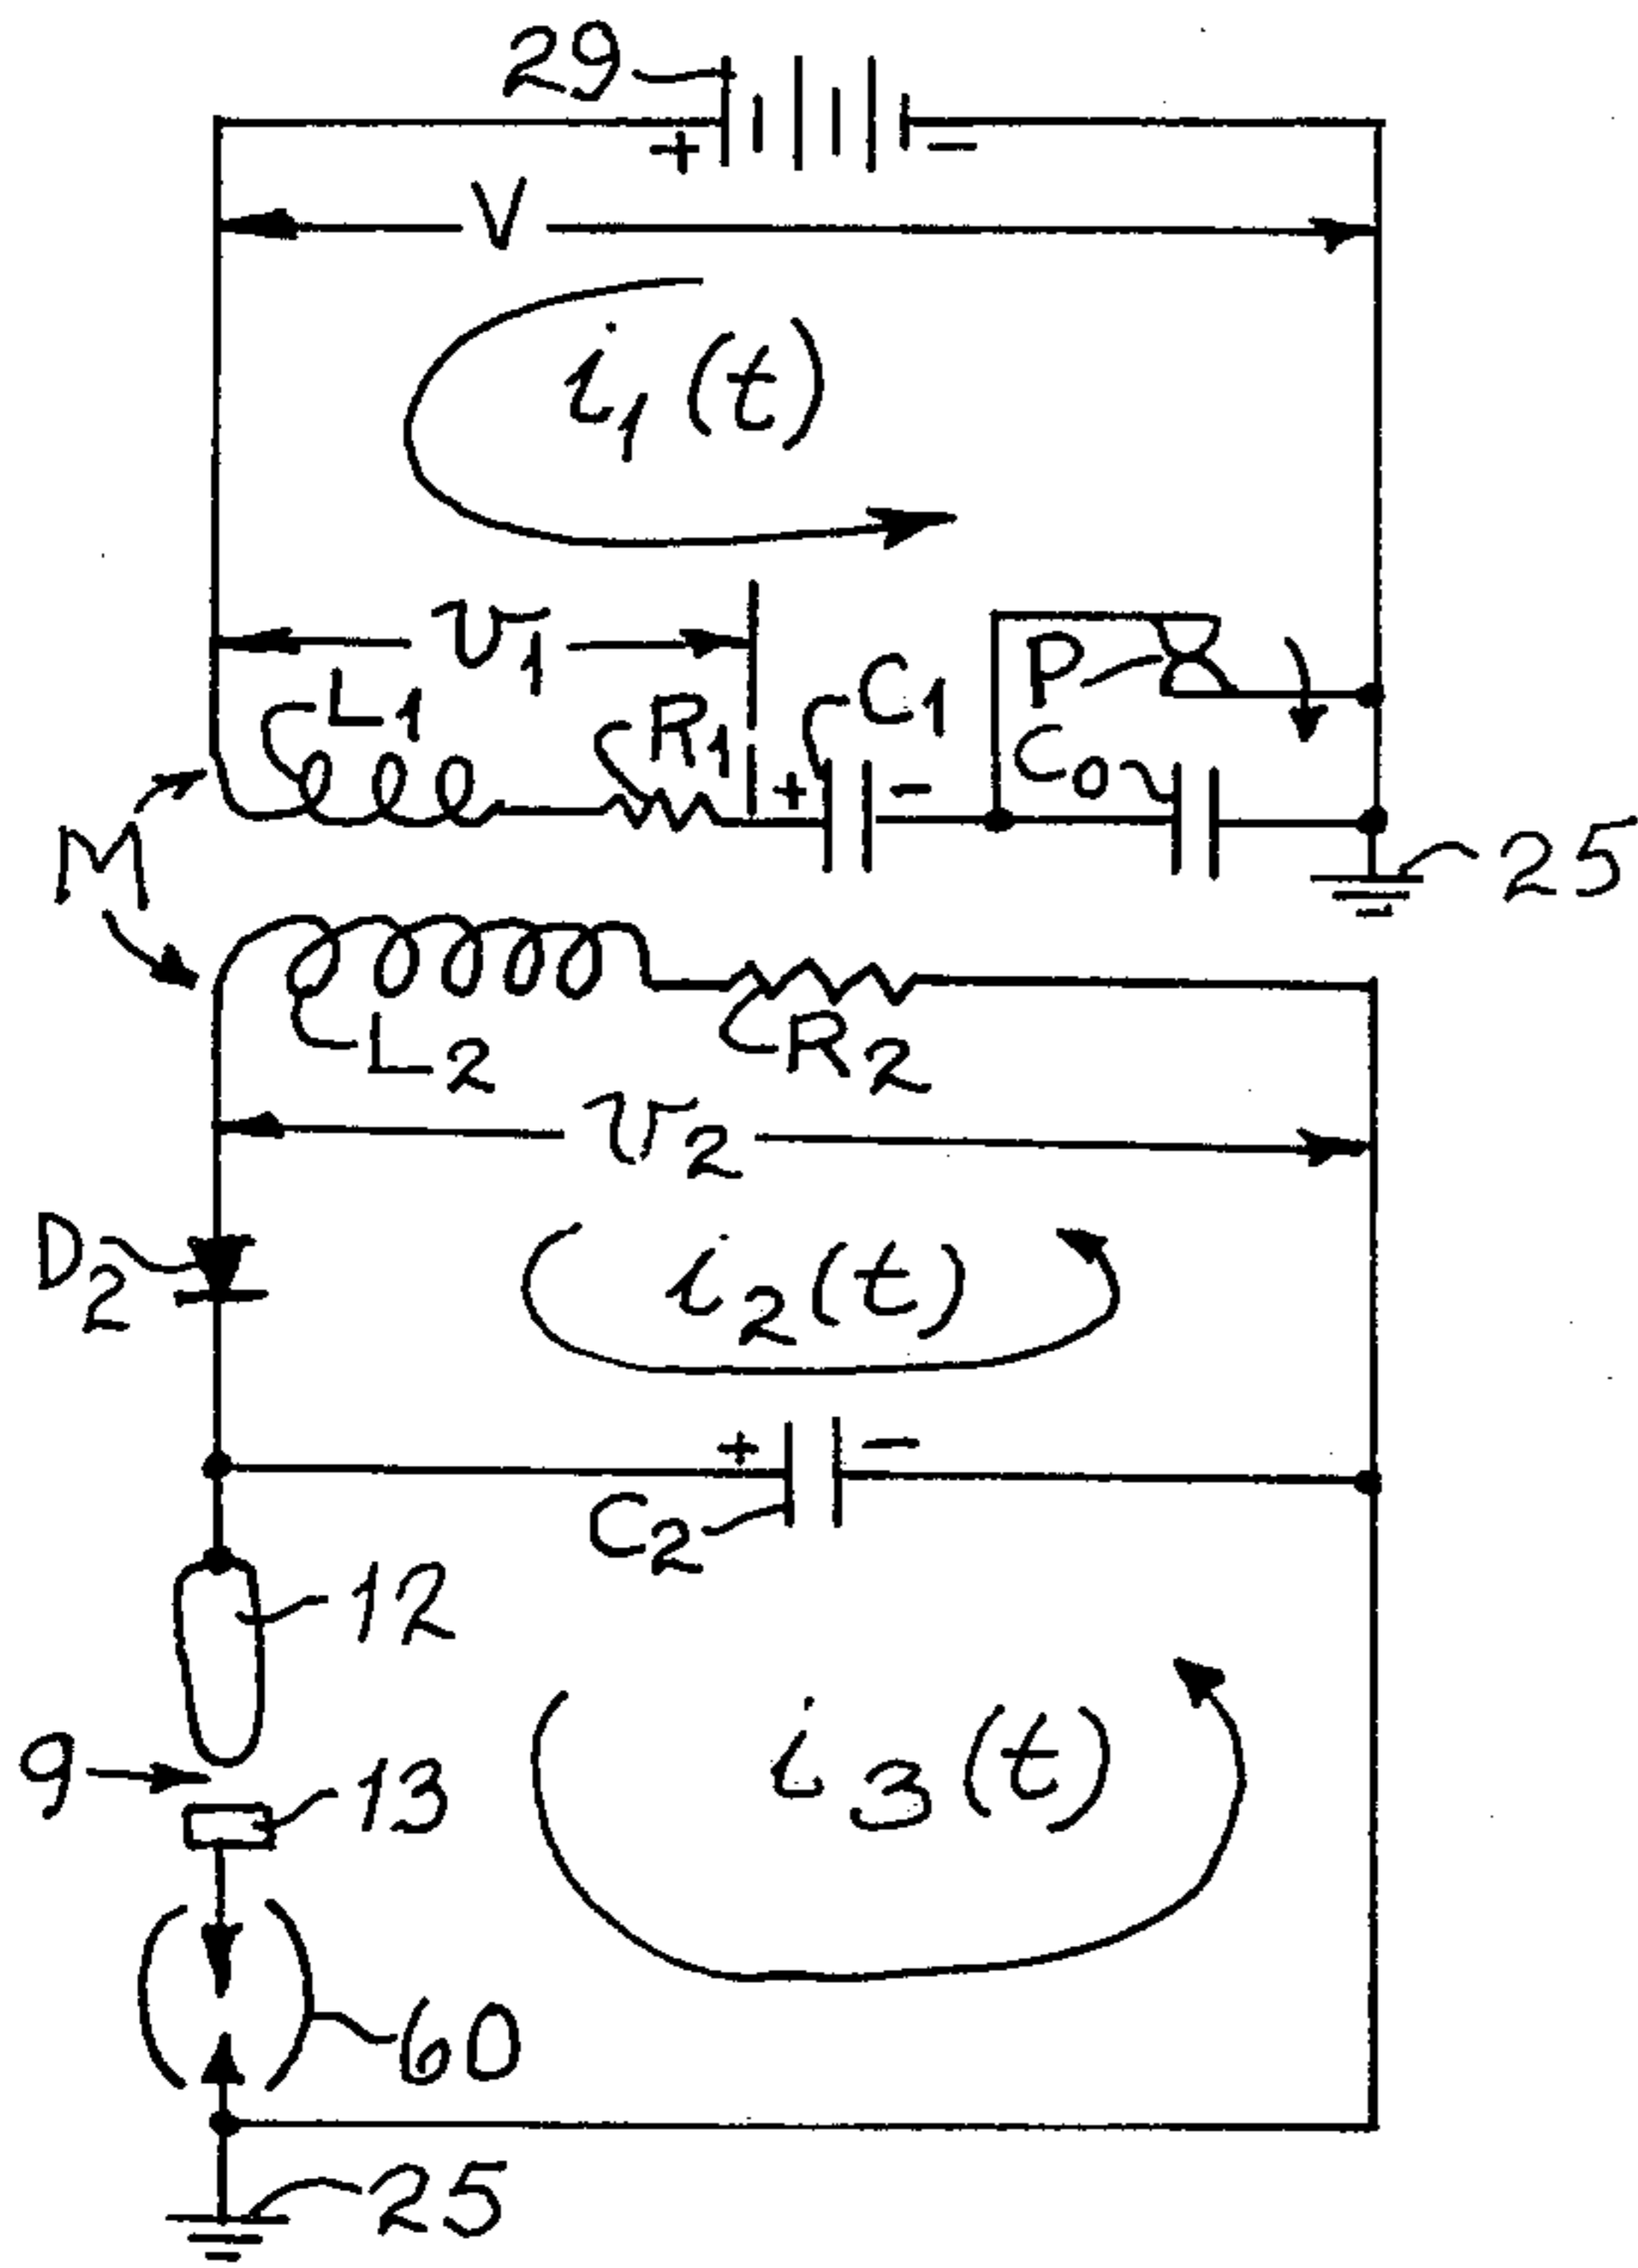 29
+ −
V
i₁(t)
v₁
L₁ R₁ C₁ P
C₀
+ −
M
25
L₂ R₂
v₂
D₂
i₂(t)
+ −
C₂
12
9
13
i₃(t)
60
25